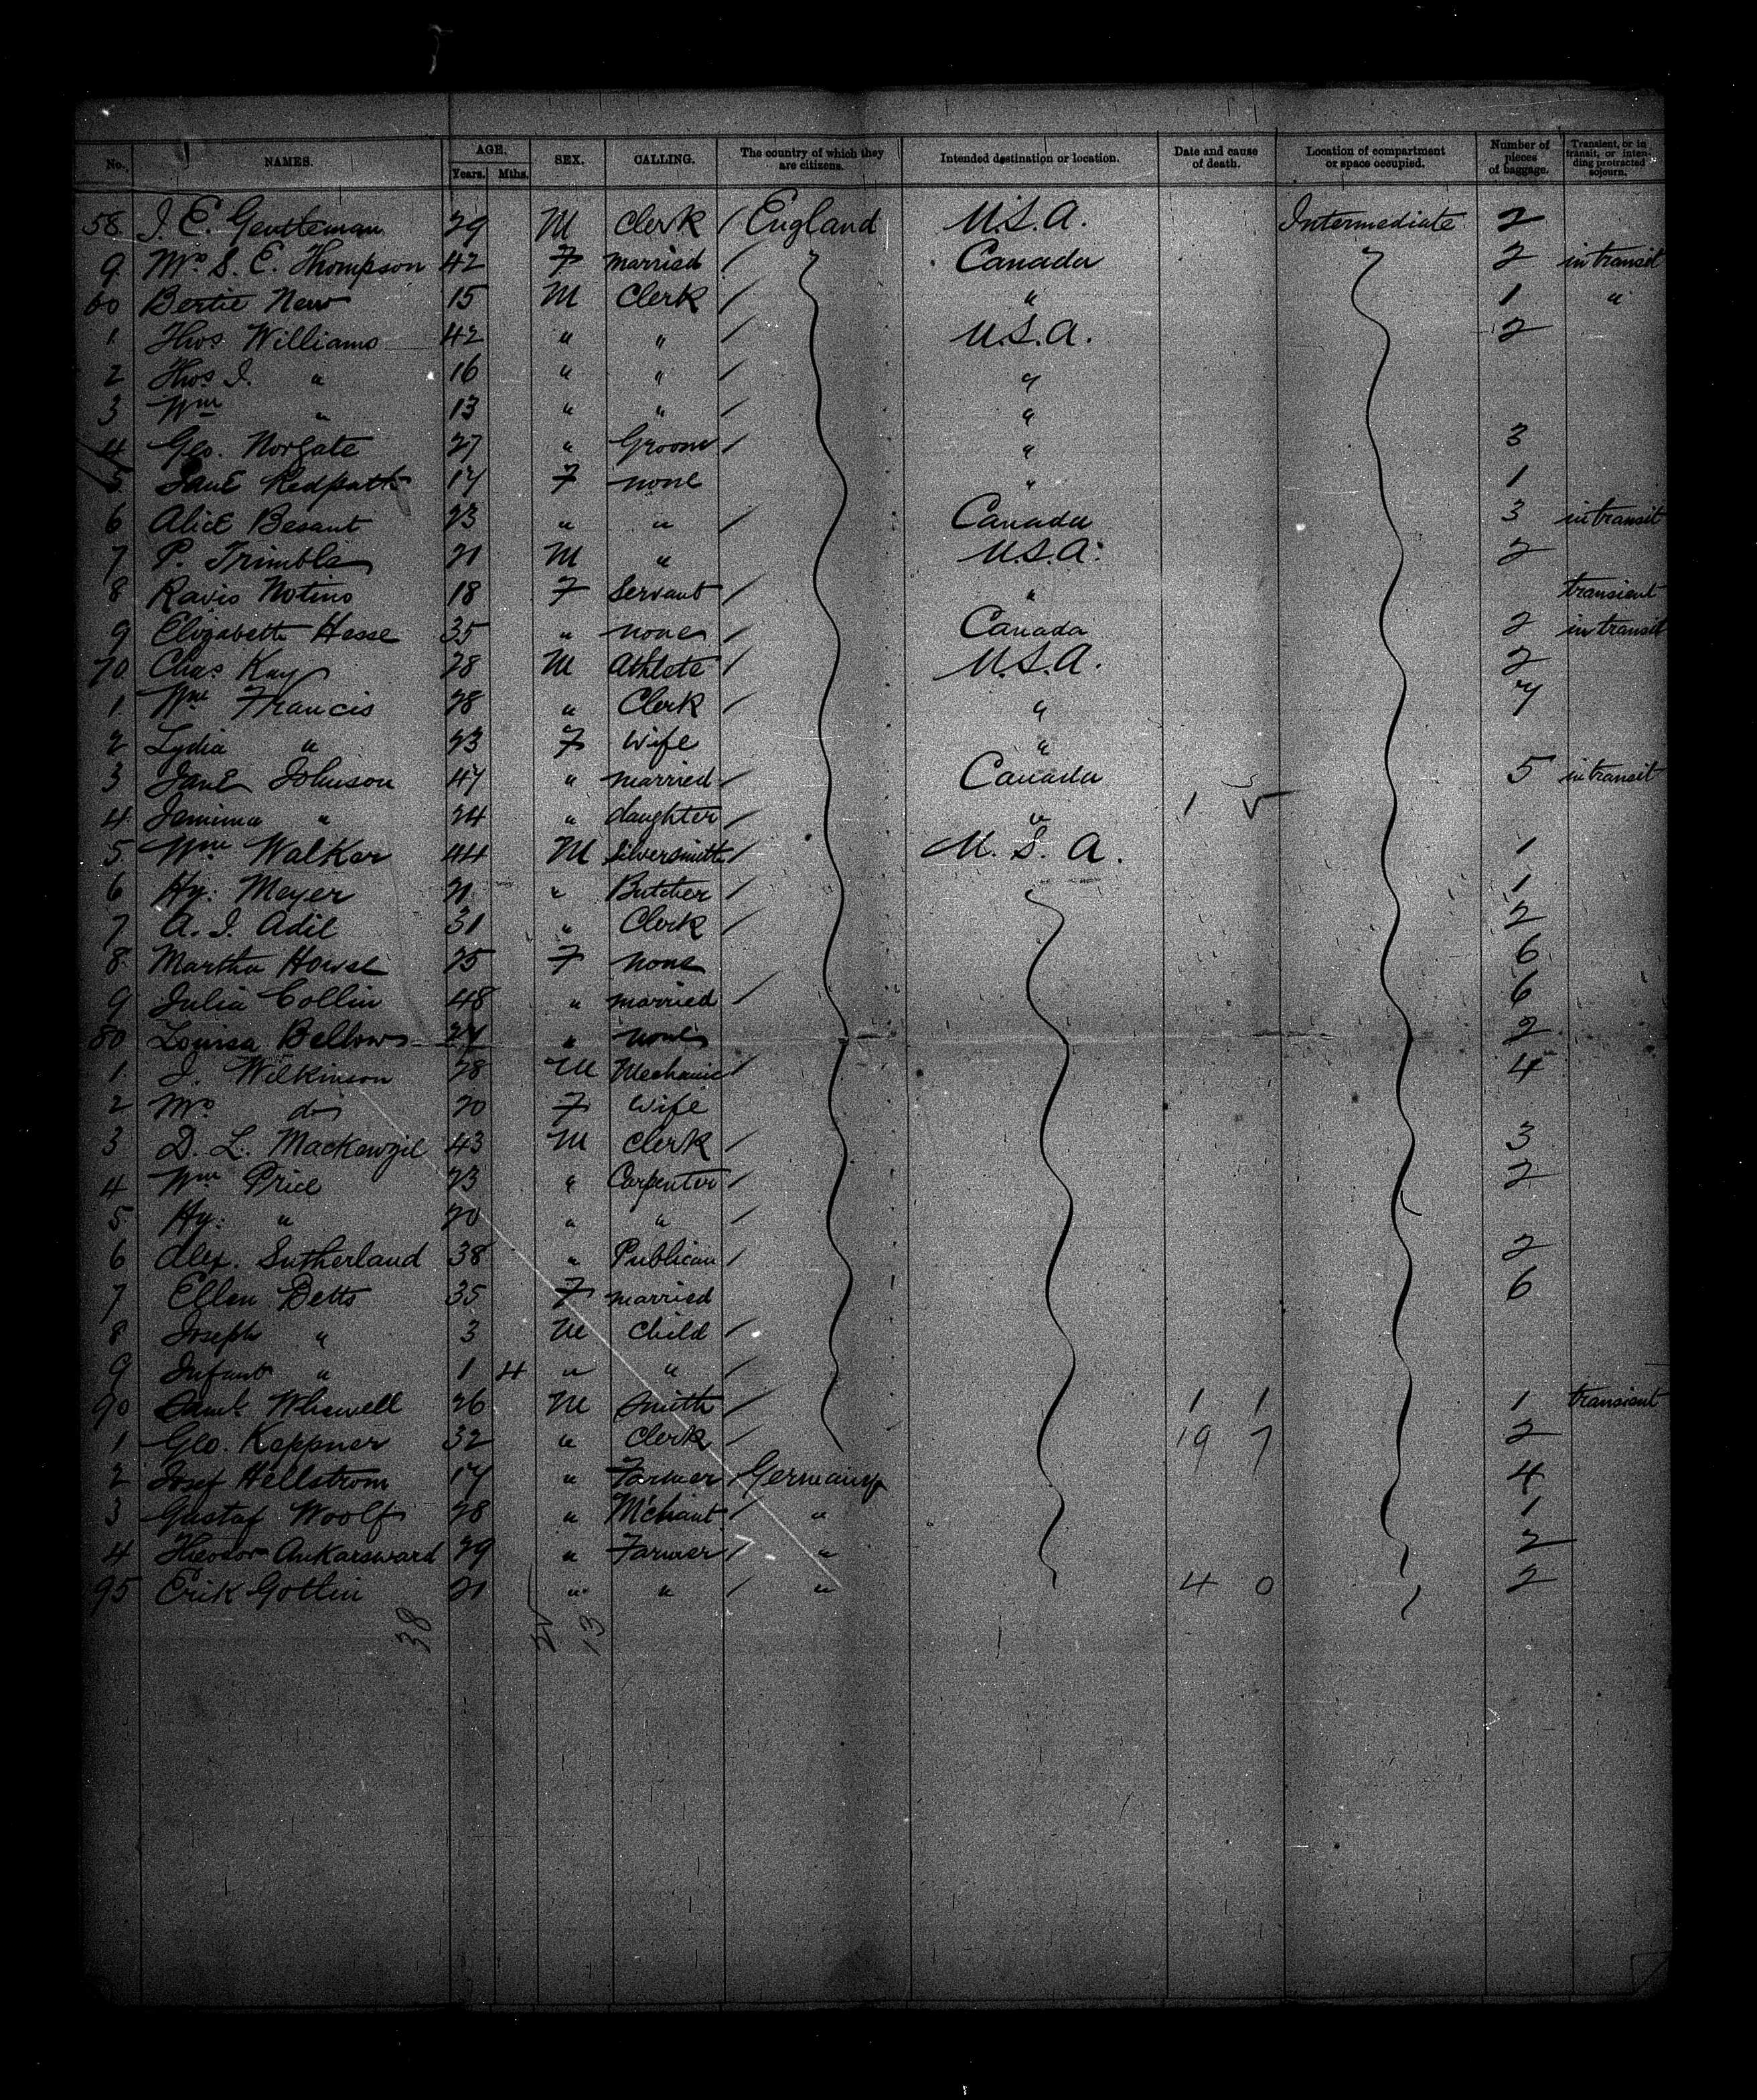 No. NAMES. AGE. Years. Mths. SEX. CALLING. The country of which they are citizens. Intended destination or location. Date and cause of death. Location of compartment or space occupied. Number of pieces of baggage. Transient, or in transit, or intending protracted sojourn.
58 J. E. Gentleman 29 M Clerk / England U.S.A. Intermediate 2
9 Mrs S. E. Thompson 42 F married / Canada 2 in transit
60 Bertie New 15 M Clerk / " 1 "
1 Thos Williams 42 " " / U.S.A. 2
2 Thos J. " 16 " " / "
3 Wm " 13 " " / "
4 Geo. Norgate 27 " Groom / " 3
5 Jane Redpath 17 F none " 1
6 Alice Besant 23 " " / Canada 3 in transit
7 P. Trimble 21 M " U.S.A. 2
8 Notino 18 F Servant / " transient
9 Elizabeth Hesse 35 " none / Canada 2 in transit
70 Chas Kay 28 M Athlete / U.S.A. 2
1 Wm Francis 28 " Clerk / " 7
2 Lydia " 23 F Wife "
3 Jane Johnson 47 " married / Canada 5 in transit
4 Jemima " 24 " daughter / " 1
5 Wm Walker 44 M Silversmith / U.S.A. 1
6 Hy: Meyer 21 " Butcher / 1
7 A. J. Adil 31 " Clerk / 2
8 Martha Howse 25 F none 6
9 Julia Collin 48 " married / 6
80 Louisa Bellows 27 " none 2
1 J. Wilkinson 28 M Mechanic / 4
2 Mrs do 20 F Wife
3 D. L. Mackenzie 43 M Clerk / 3
4 Wm Price 23 " Carpenter / 2
5 Hy: " 20 " " /
6 Alex. Sutherland 38 " Publican / 2
7 Ellen Betts 35 F married 6
8 Joseph " 3 M Child /
9 Infant " 1 4 " " /
90 Saml Whewell 26 M Smith / 1 1 1 transient
1 Geo. Keppner 32 " Clerk / 19 7 2
2 Josef Hellstrom 17 " Farmer / Germany 4
3 Gustaf Woolf 28 " M'chant / " 1
4 Theodor Ankarsward 29 " Farmer / " 2
95 Erik Gotlin 21 " " / " 4 0 2
38 13